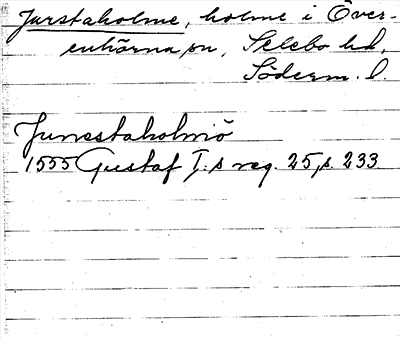 Jurstaholme, holme i Över-
enhörna sn, Selebo hd,
Söderm. l.
Junestaholmö
1555 Gustaf I:s reg. 25, s. 233